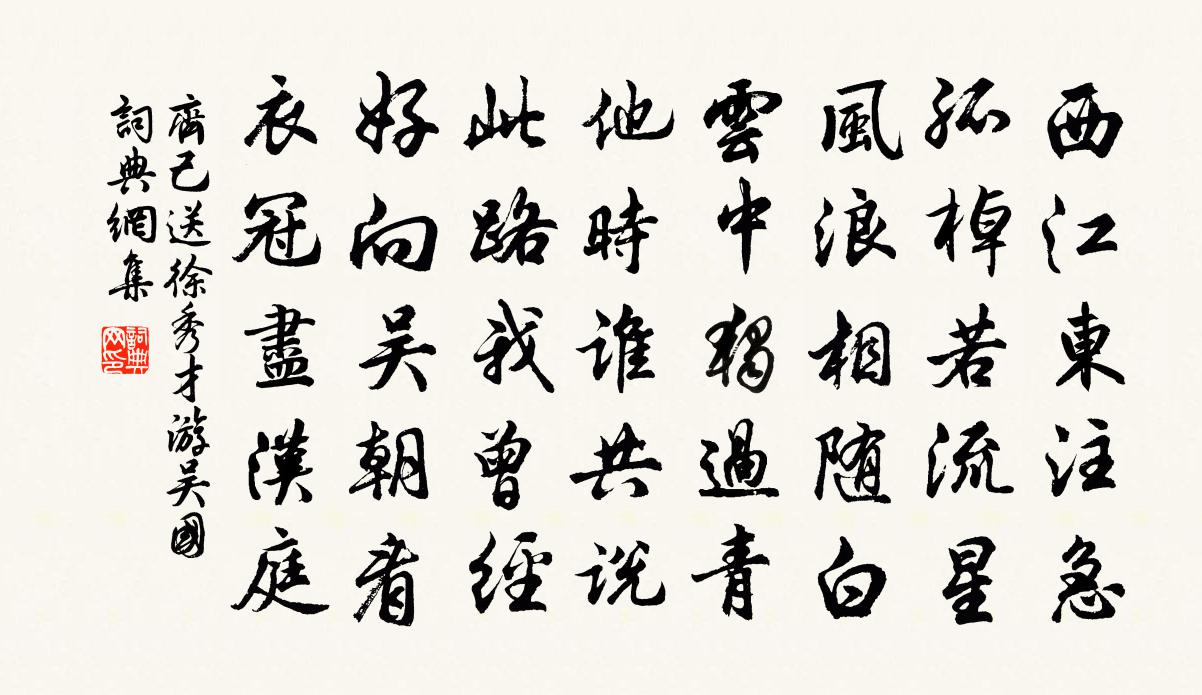 西江東注急
孤棹若流星
風浪相随白
雲中獨過青
他時誰共說
此路我曾經
好向吴朝看
衣冠盡漢庭
齊己送徐秀才游吴國
詞典網集
詞典
网印